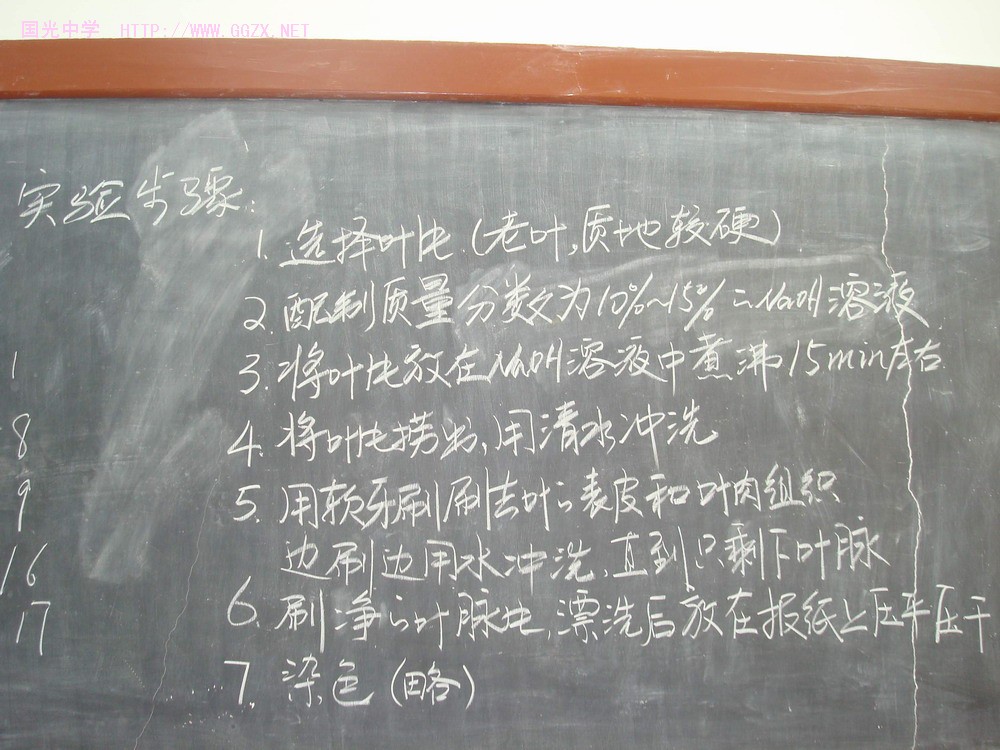 国光中学 HTTP://WWW.GGZX.NET
实验步骤:
1. 选择叶片.(老叶,质地较硬)
2. 配制质量分数为10%~15%的NaOH溶液
1
3. 将叶片放在NaOH溶液中煮沸15min左右.
8
4. 将叶片捞出,用清水冲洗
9
5. 用软牙刷刷去叶的表皮和叶肉组织
边刷边用水冲洗,直到只剩下叶脉
16
6. 刷净的叶脉片,漂洗后放在报纸上压平压干
17
7. 染色(略)